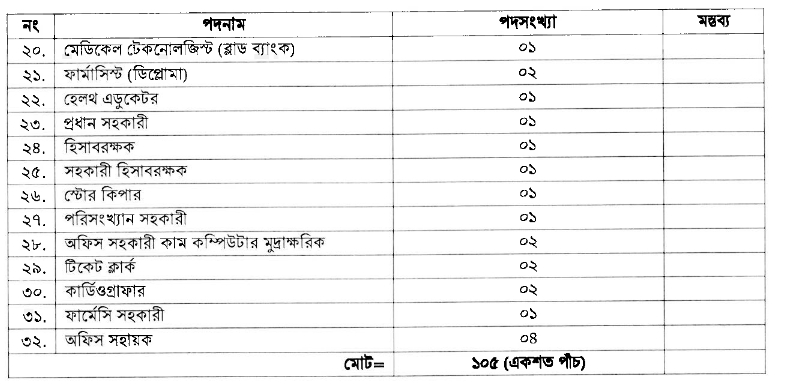 নং পদনাম পদসংখ্যা মন্তব্য
২০. মেডিকেল টেকনোলজিস্ট (ব্লাড ব্যাংক) ০১
২১. ফার্মাসিস্ট (ডিপ্লোমা) ০২
২২. হেলথ এডুকেটর ০১
২৩. প্রধান সহকারী ০১
২৪. হিসাবরক্ষক ০১
২৫. সহকারী হিসাবরক্ষক ০১
২৬. স্টোর কিপার ০১
২৭. পরিসংখ্যান সহকারী ০১
২৮. অফিস সহকারী কাম কম্পিউটার মুদ্রাক্ষরিক ০২
২৯. টিকেট ক্লার্ক ০২
৩০. কার্ডিওগ্রাফার ০২
৩১. ফার্মেসি সহকারী ০১
৩২. অফিস সহায়ক ০৪
মোট= ১০৫ (একশত পাঁচ)